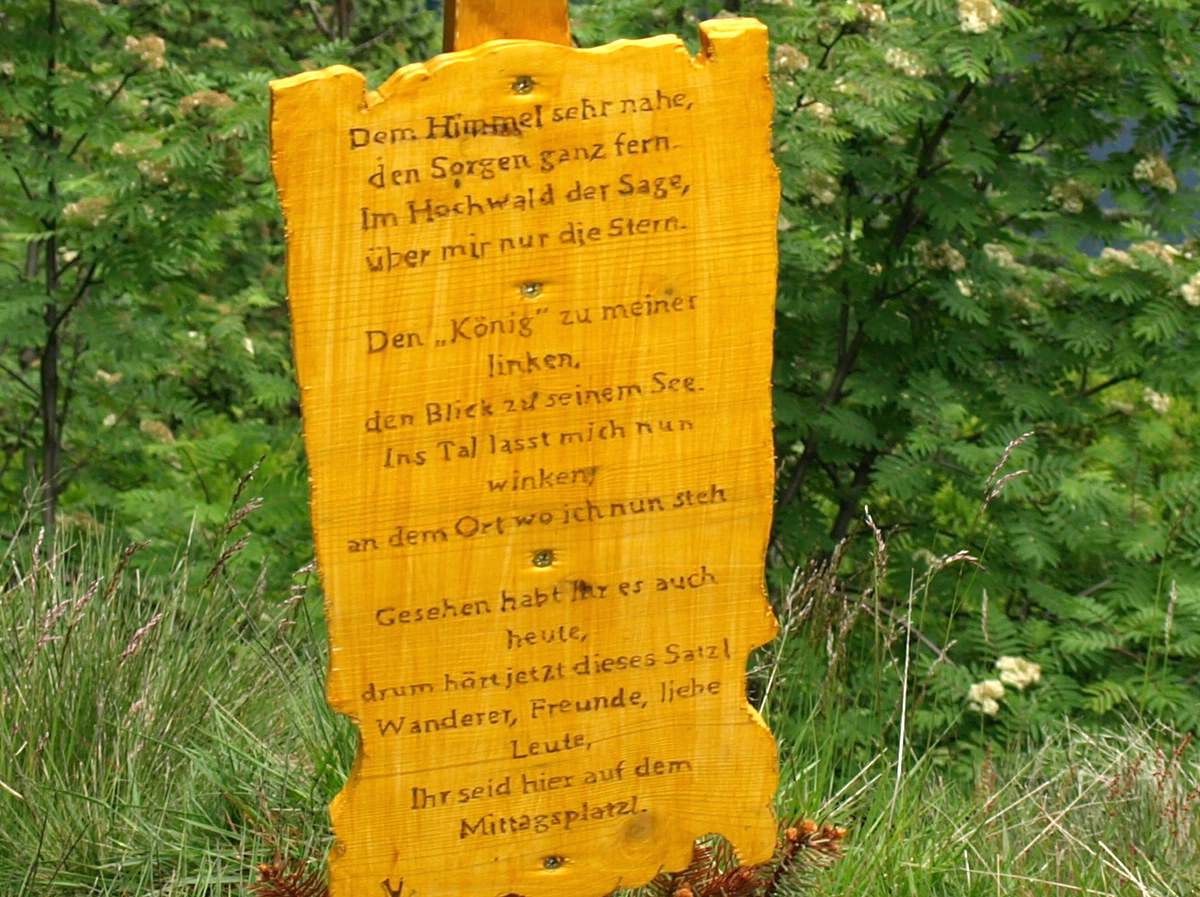 Dem Himmel sehr nahe,
den Sorgen ganz fern.
Im Hochwald der Sage,
über mir nur die Stern.
Den „König" zu meiner
linken,
den Blick zu seinem See.
Ins Tal lasst mich nun
winken,
an dem Ort wo ich nun steh
Gesehen habt Ihr es auch
heute,
drum hört jetzt dieses Satzl
Wanderer, Freunde, liebe
Leute,
Ihr seid hier auf dem
Mittagsplatzl.